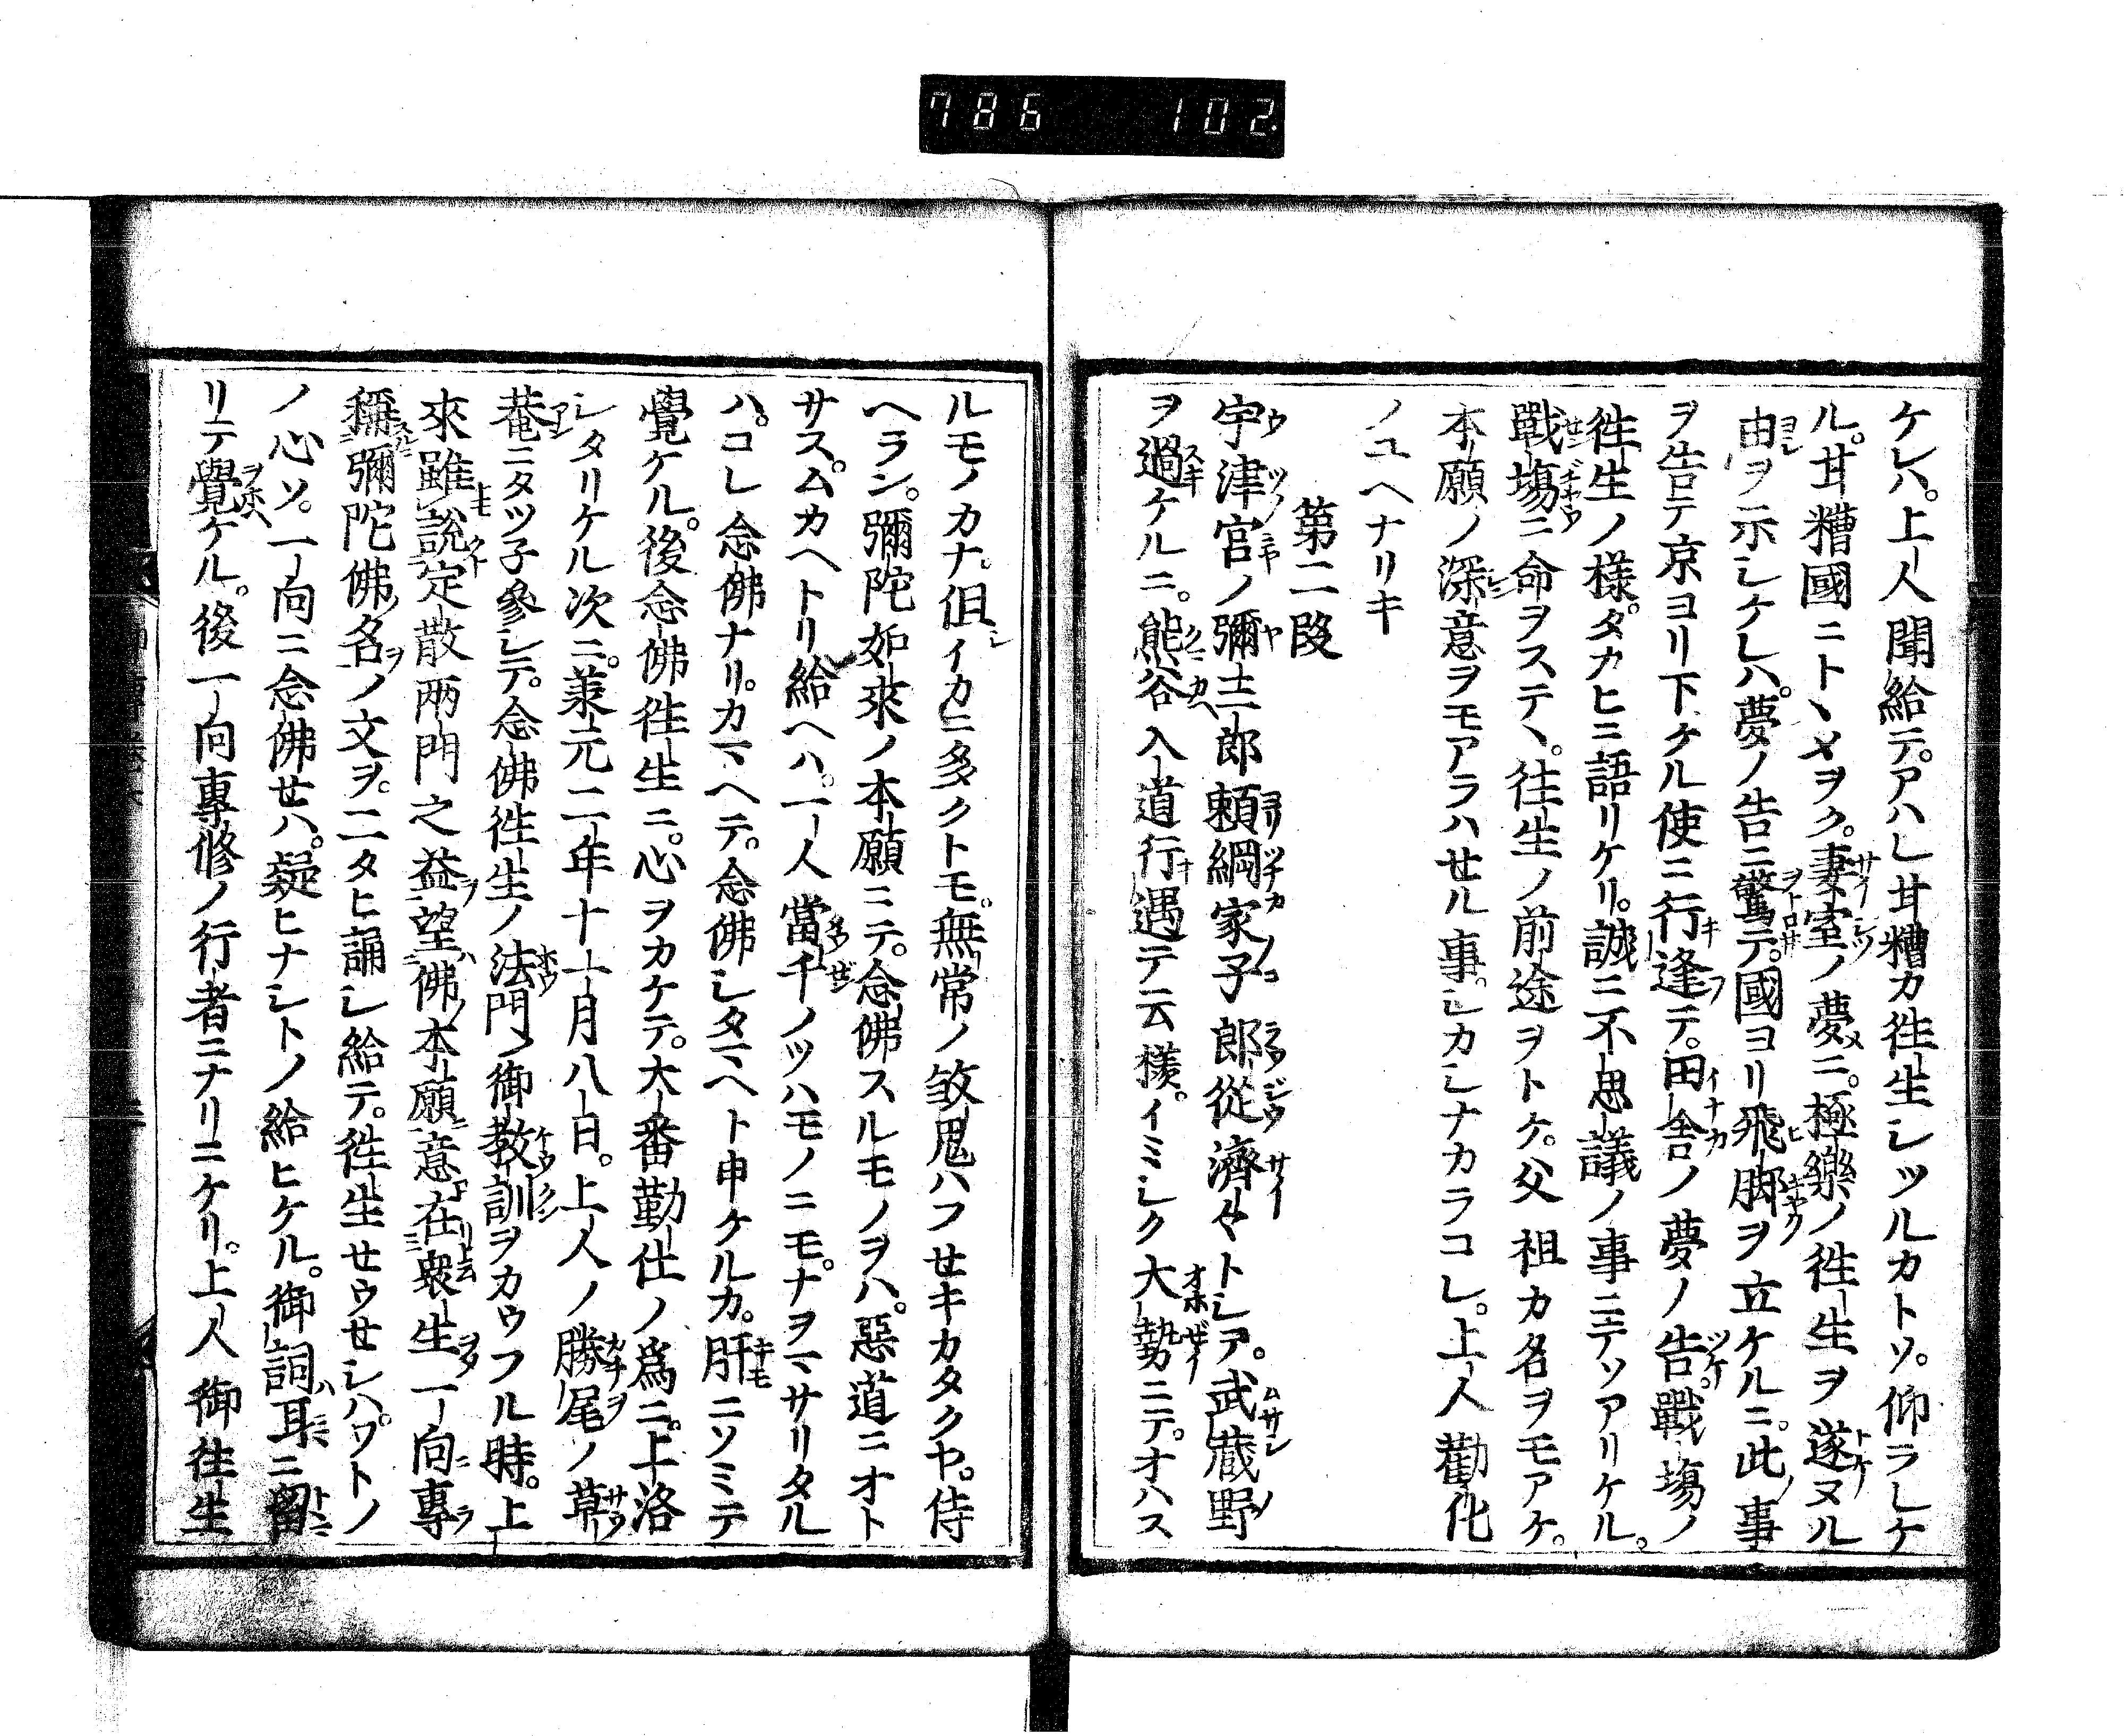 786 102.
ケレハ。上人聞給テ。アハレ甘糟カ往生シツルカトソ。仰ラレケ
ル。甘糟國ニトヽメヲク。妻室ノ夢ニ。極樂ノ往生ヲ遂ヌル
由ヲ示シケレハ。夢ノ告ニ驚テ。國ヨリ飛脚ヲ立ケルニ。此事
ヲ告テ京ヨリ下ケル使ニ行逢テ。田舎ノ夢ノ告。戰塲ノ
往生ノ樣。タカヒニ語リケリ。誠ニ不思議ノ事ニテソアリケル。
戰塲ニ命ヲステヽ。往生ノ前途ヲトケ。父祖カ名ヲモアケ。
本願ノ深意ヲモアラハセル事。シカシナカラコレ。上人勸化
ノユヘナリキ
第二段
宇津宮ノ彌三郎頼綱家子郎從濟々トシテ。武藏野
ヲ過ケルニ。熊谷入道行遇テ云樣。イミシク大勢ニテ。オハス
ルモノカナ。但イカニ多クトモ。無常ノ殺鬼ハフセキカタクヤ。侍
ヘラン。彌陀如來ノ本願ニテ。念佛スルモノヲハ。惡道ニオト
サス。ムカヘトリ給ヘハ。一人當千ノツハモノニモ。ナヲマサリタル
ハ。コレ念佛ナリ。カマヘテ。念佛シタマヘト申ケルカ。肝ニソミテ
覺ケル。後念佛往生ニ。心ヲカケテ。大番勤仕ノ爲ニ。上洛
シタリケル次ニ。羕元二年十一月八日。上人ノ勝尾ノ草
菴ニタツ子參シテ。念佛往生ノ法門ノ御教訓ヲカウフル時。上
來雖説定散兩門之益望佛本願意在衆生一向專
稱彌陀佛名ノ文ヲ。二タヒ誦シ給テ。往生セウセシハ。ワトノ
ノ心ソ。一向ニ念佛セハ。疑ヒナシトノ給ヒケル。御詞耳ニ留
リテ覺ケル。後一向專修ノ行者ニナリニケリ。上人御往生